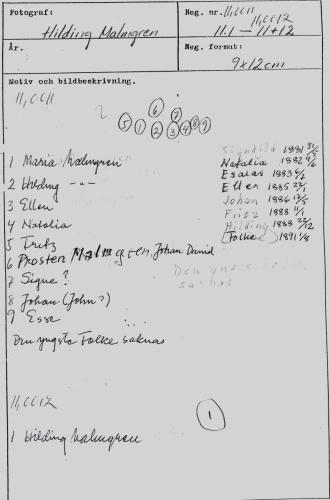 Fotograf:
Hilding Malmgren
Neg. nr. 11,CC11
11,CC12
11.1 — 11+12
År.
Neg. format:
9x12cm
Motiv och bildbeskrivning.
11,CC11
6
5 1 2 7 3 4 8 9
1 Maria Malmgren
2 Hilding -"-
3 Ellen
4 Natalia
5 Fritz
6 Prosten Malmgren, Johan David
7 Signe?
8 Johan (John?)
9 Esse
Signhild 1881
Natalia 1882
Esaias 1883
Ellen 1885
Johan 1886
Fritz 1888
Hilding 1888
(Folke) 1891
Den yngste
saknas
Den yngsta Folke saknas
11,CC12
1
1 Hilding Malmgren